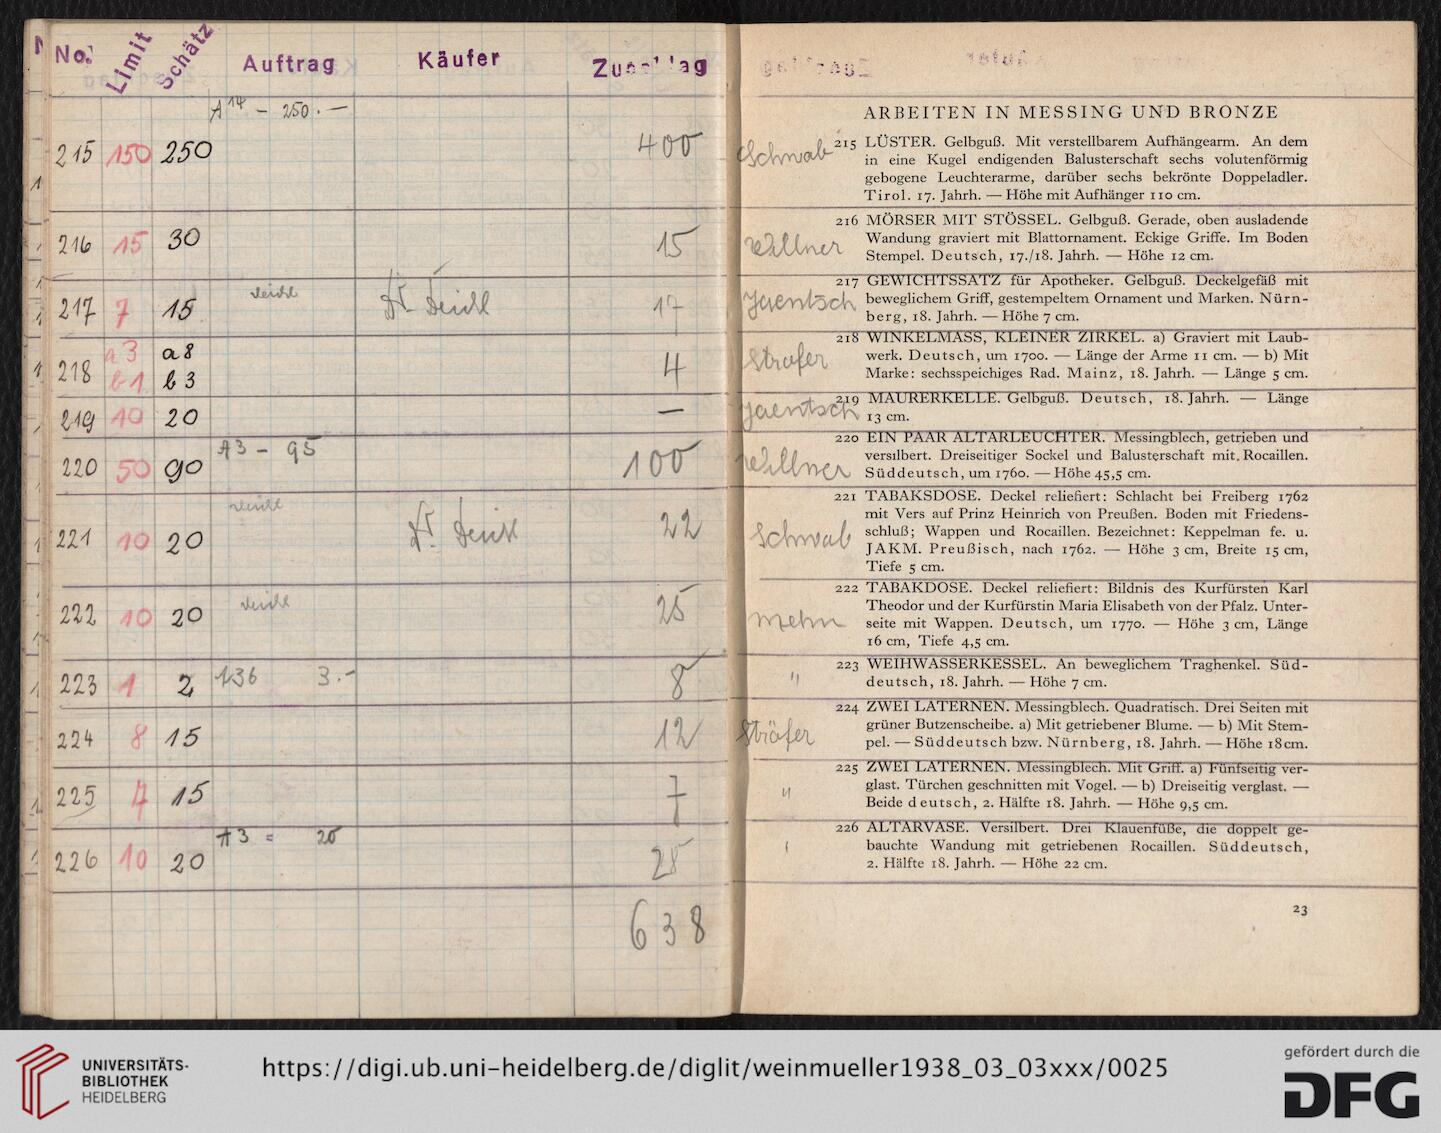 No. Limit Schätz Auftrag Käufer Zuschlag
A 14 – 250.–
215 150 250 400
216 15 30 15
217 7 15 Dr. Deichl 17
218 a 3 a 8 4
b 1 b 3
219 10 20 –
A 3 – 95
220 50 90 100
221 10 20 Dr. Deichl 22
222 10 20 25
223 1 2 136 3.– 8
224 8 15 12
225 4 15 7
A 3 = 20
226 10 20
638
ARBEITEN IN MESSING UND BRONZE
Schwab 215 LÜSTER. Gelbguß. Mit verstellbarem Aufhängearm. An dem
in eine Kugel endigenden Balusterschaft sechs volutenförmig
gebogene Leuchterarme, darüber sechs bekrönte Doppeladler.
Tirol. 17. Jahrh. — Höhe mit Aufhänger 110 cm.
216 MÖRSER MIT STÖSSEL. Gelbguß. Gerade, oben ausladende
Wandung graviert mit Blattornament. Eckige Griffe. Im Boden
Stempel. Deutsch, 17./18. Jahrh. — Höhe 12 cm.
217 GEWICHTSSATZ für Apotheker. Gelbguß. Deckelgefäß mit
Jaentsch beweglichem Griff, gestempeltem Ornament und Marken. Nürn-
berg, 18. Jahrh. — Höhe 7 cm.
218 WINKELMASS, KLEINER ZIRKEL. a) Graviert mit Laub-
werk. Deutsch, um 1700. — Länge der Arme 11 cm. — b) Mit
Marke: sechsspeichiges Rad. Mainz, 18. Jahrh. — Länge 5 cm.
Jaentsch 219 MAURERKELLE. Gelbguß. Deutsch, 18. Jahrh. — Länge
13 cm.
220 EIN PAAR ALTARLEUCHTER. Messingblech, getrieben und
versilbert. Dreiseitiger Sockel und Balusterschaft mit Rocaillen.
Süddeutsch, um 1760. — Höhe 45,5 cm.
221 TABAKSDOSE. Deckel reliefiert: Schlacht bei Freiberg 1762
mit Vers auf Prinz Heinrich von Preußen. Boden mit Friedens-
Schwab schluß; Wappen und Rocaillen. Bezeichnet: Keppelman fe. u.
JAKM. Preußisch, nach 1762. — Höhe 3 cm, Breite 15 cm,
Tiefe 5 cm.
222 TABAKDOSE. Deckel reliefiert: Bildnis des Kurfürsten Karl
Theodor und der Kurfürstin Maria Elisabeth von der Pfalz. Unter-
seite mit Wappen. Deutsch, um 1770. — Höhe 3 cm, Länge
16 cm, Tiefe 4,5 cm.
223 WEIHWASSERKESSEL. An beweglichem Traghenkel. Süd-
" deutsch, 18. Jahrh. — Höhe 7 cm.
224 ZWEI LATERNEN. Messingblech. Quadratisch. Drei Seiten mit
Sträfer grüner Butzenscheibe. a) Mit getriebener Blume. — b) Mit Stem-
pel. — Süddeutsch bzw. Nürnberg, 18. Jahrh. — Höhe 18 cm.
225 ZWEI LATERNEN. Messingblech. Mit Griff. a) Fünfseitig ver-
" glast. Türchen geschnitten mit Vogel. — b) Dreiseitig verglast. —
Beide deutsch, 2. Hälfte 18. Jahrh. — Höhe 9,5 cm.
226 ALTARVASE. Versilbert. Drei Klauenfüße, die doppelt ge-
bauchte Wandung mit getriebenen Rocaillen. Süddeutsch,
2. Hälfte 18. Jahrh. — Höhe 22 cm.
23
UNIVERSITÄTS-
BIBLIOTHEK
HEIDELBERG
https://digi.ub.uni-heidelberg.de/diglit/weinmueller1938_03_03xxx/0025
gefördert durch die
DFG